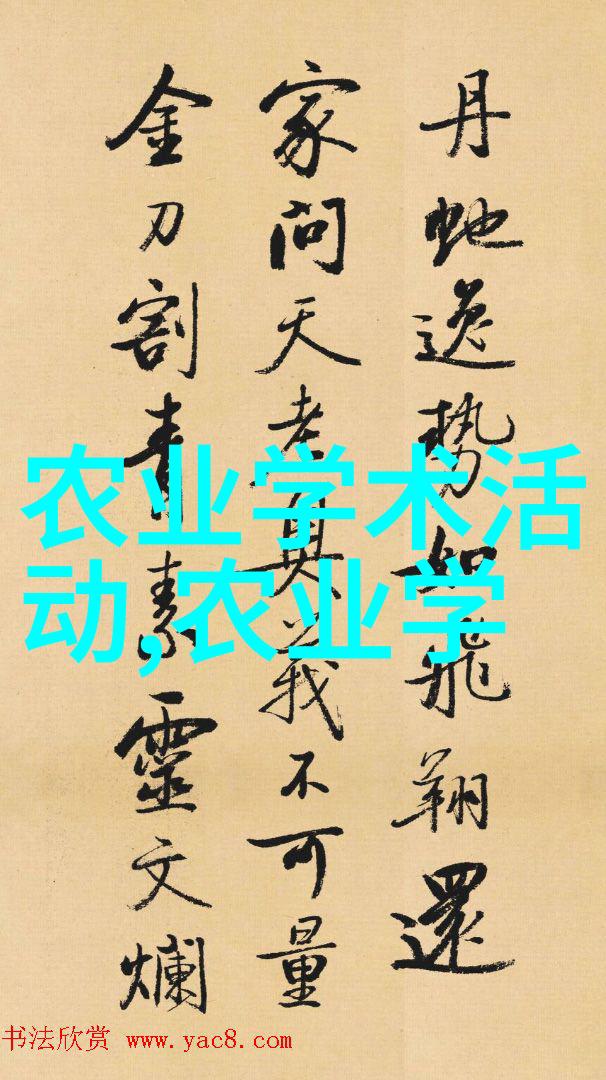 丹虵逸势如飛翔還
家問天老奥義不可量
金刀割青素靈文爛
农业学术活
动,农业学
书法欣赏 www.yac8.com